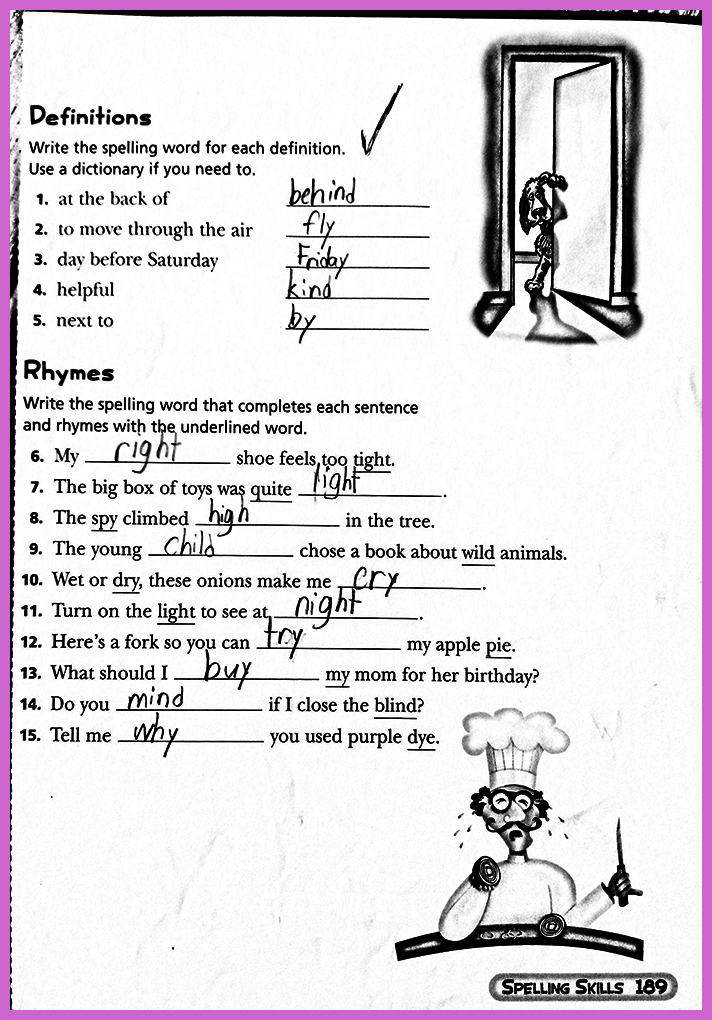 Definitions
Write the spelling word for each definition.
Use a dictionary if you need to.
1. at the back of behind
2. to move through the air fly
3. day before Saturday Friday
4. helpful kind
5. next to by
Rhymes
Write the spelling word that completes each sentence
and rhymes with the underlined word.
6. My right shoe feels too tight.
7. The big box of toys was quite light.
8. The spy climbed high in the tree.
9. The young child chose a book about wild animals.
10. Wet or dry, these onions make me cry.
11. Turn on the light to see at night.
12. Here's a fork so you can try my apple pie.
13. What should I buy my mom for her birthday?
14. Do you mind if I close the blind?
15. Tell me why you used purple dye.
SPELLING SKILLS 189